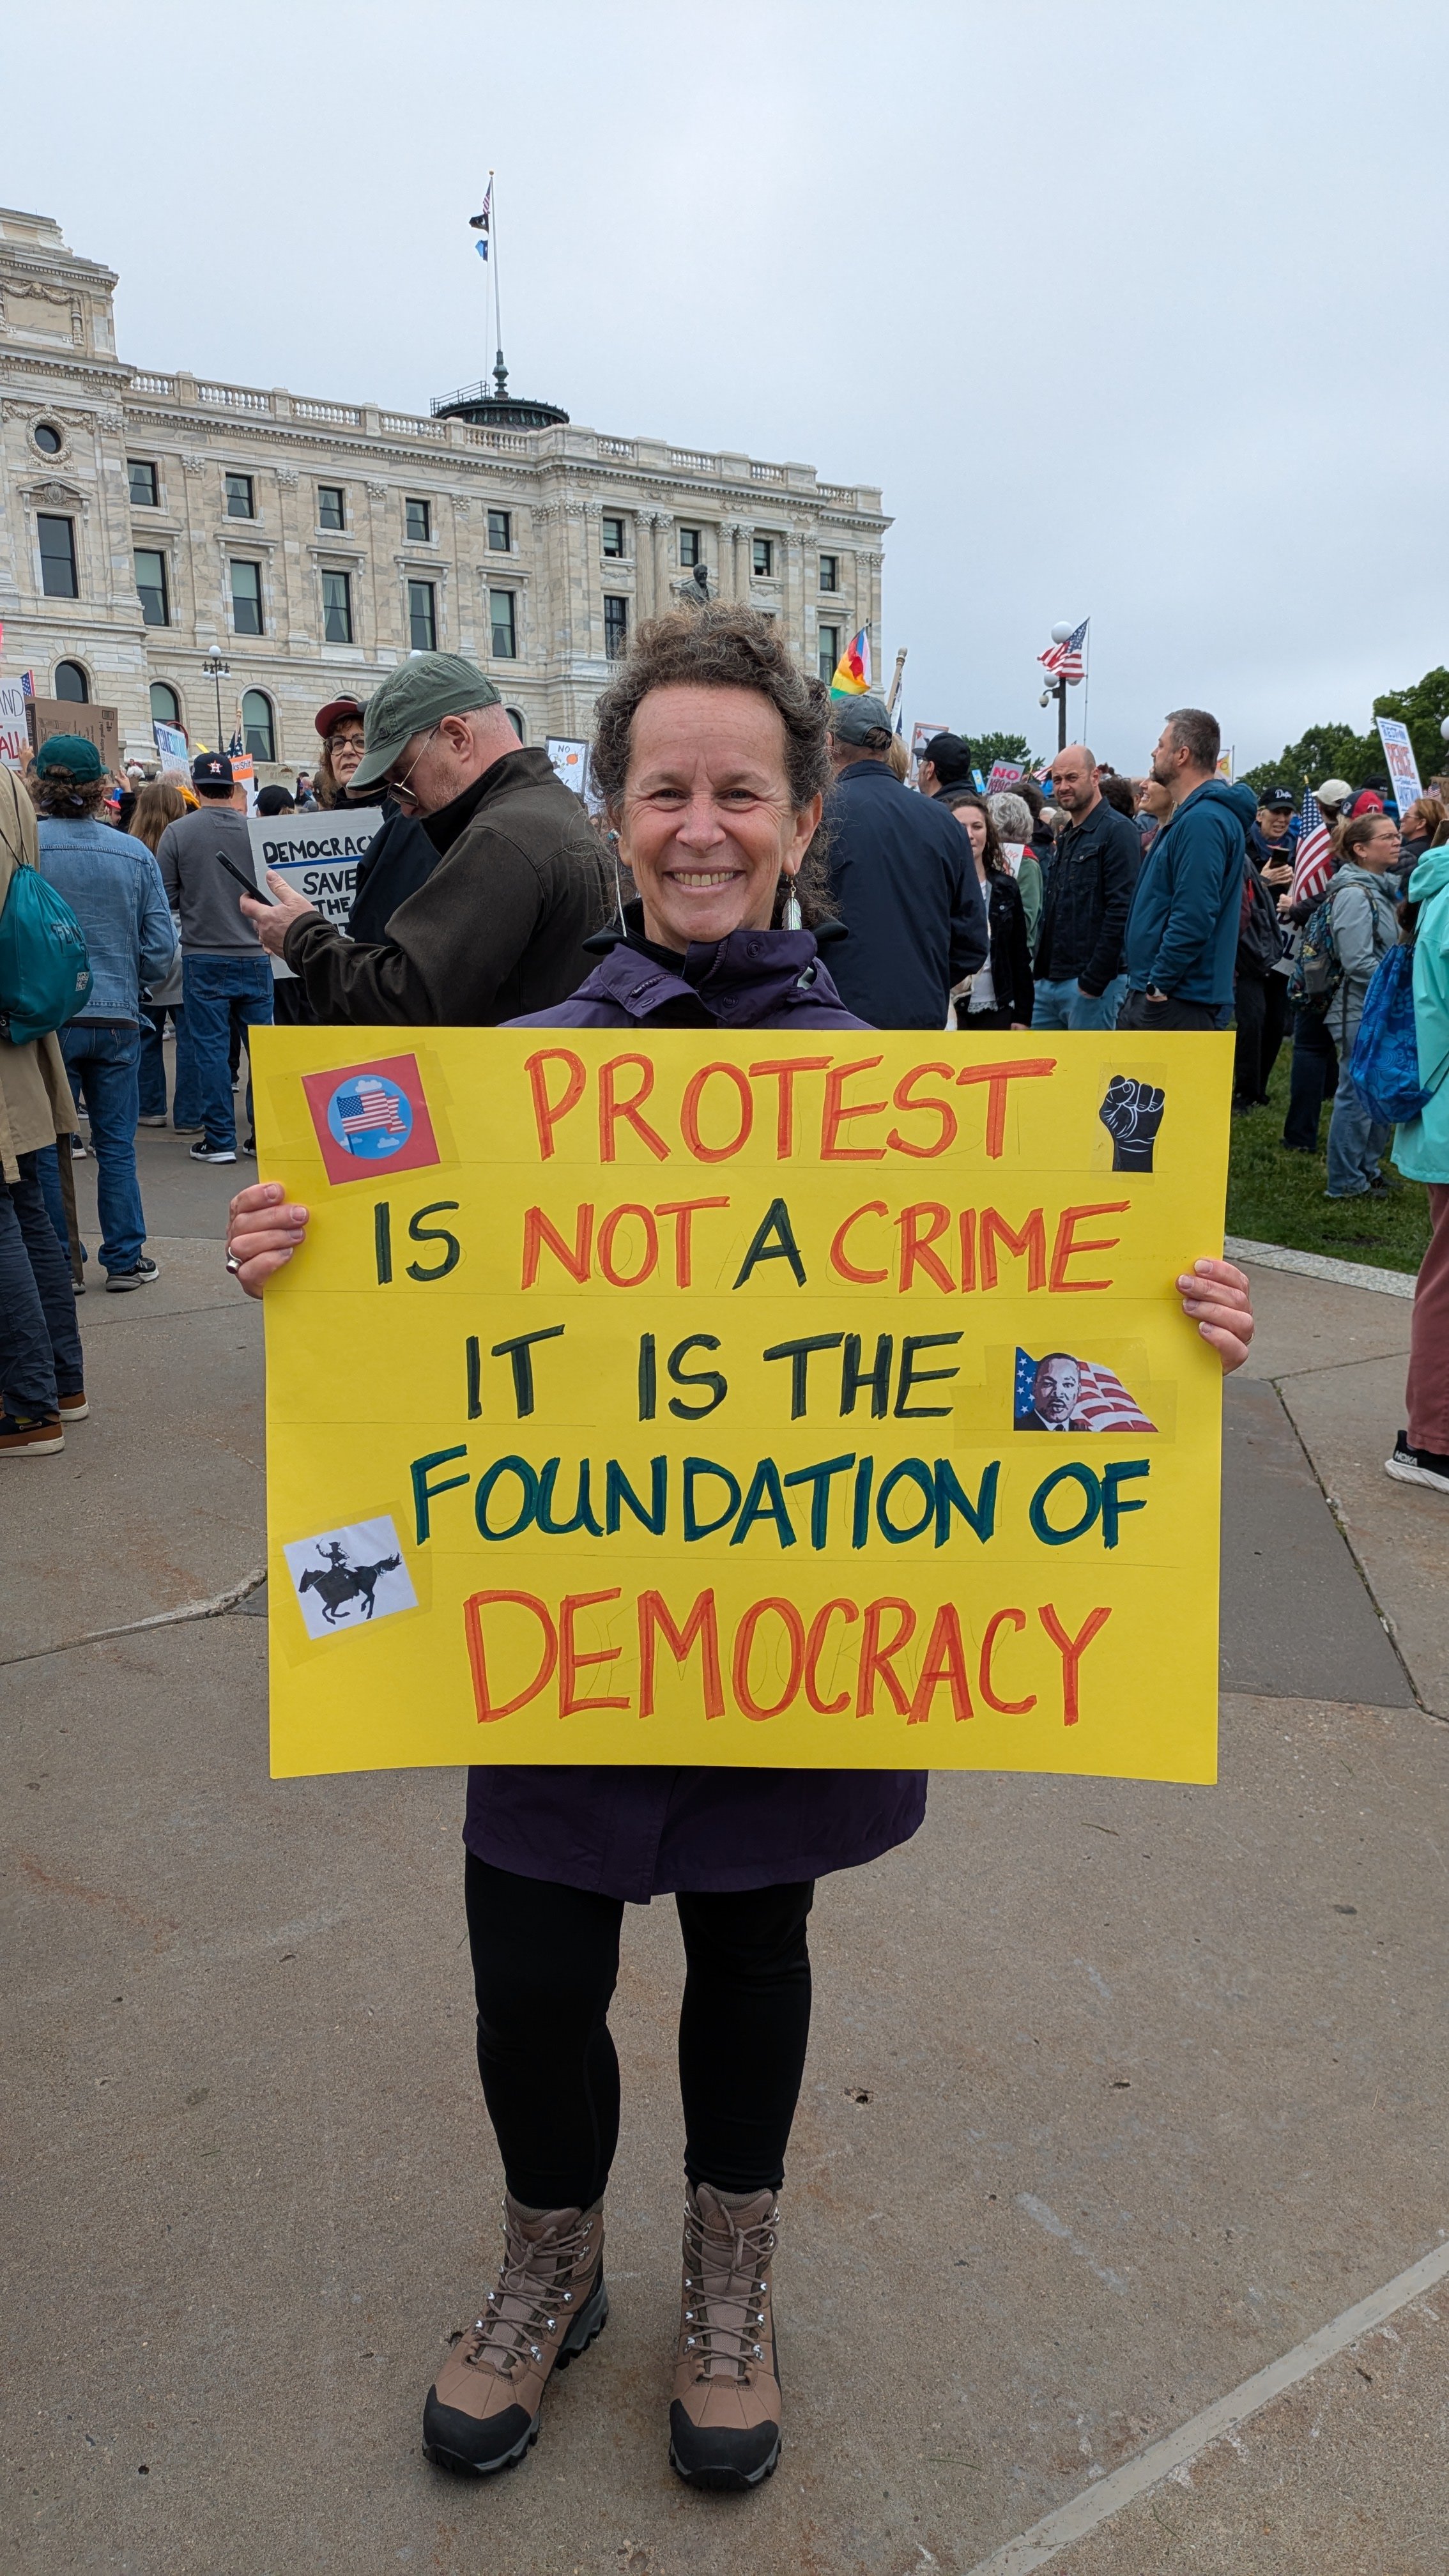 PROTEST
IS NOT A CRIME
IT IS THE
FOUNDATION OF
DEMOCRACY
DEMOCRACY
SAVE
THE
NO
NO
AND
HOKA